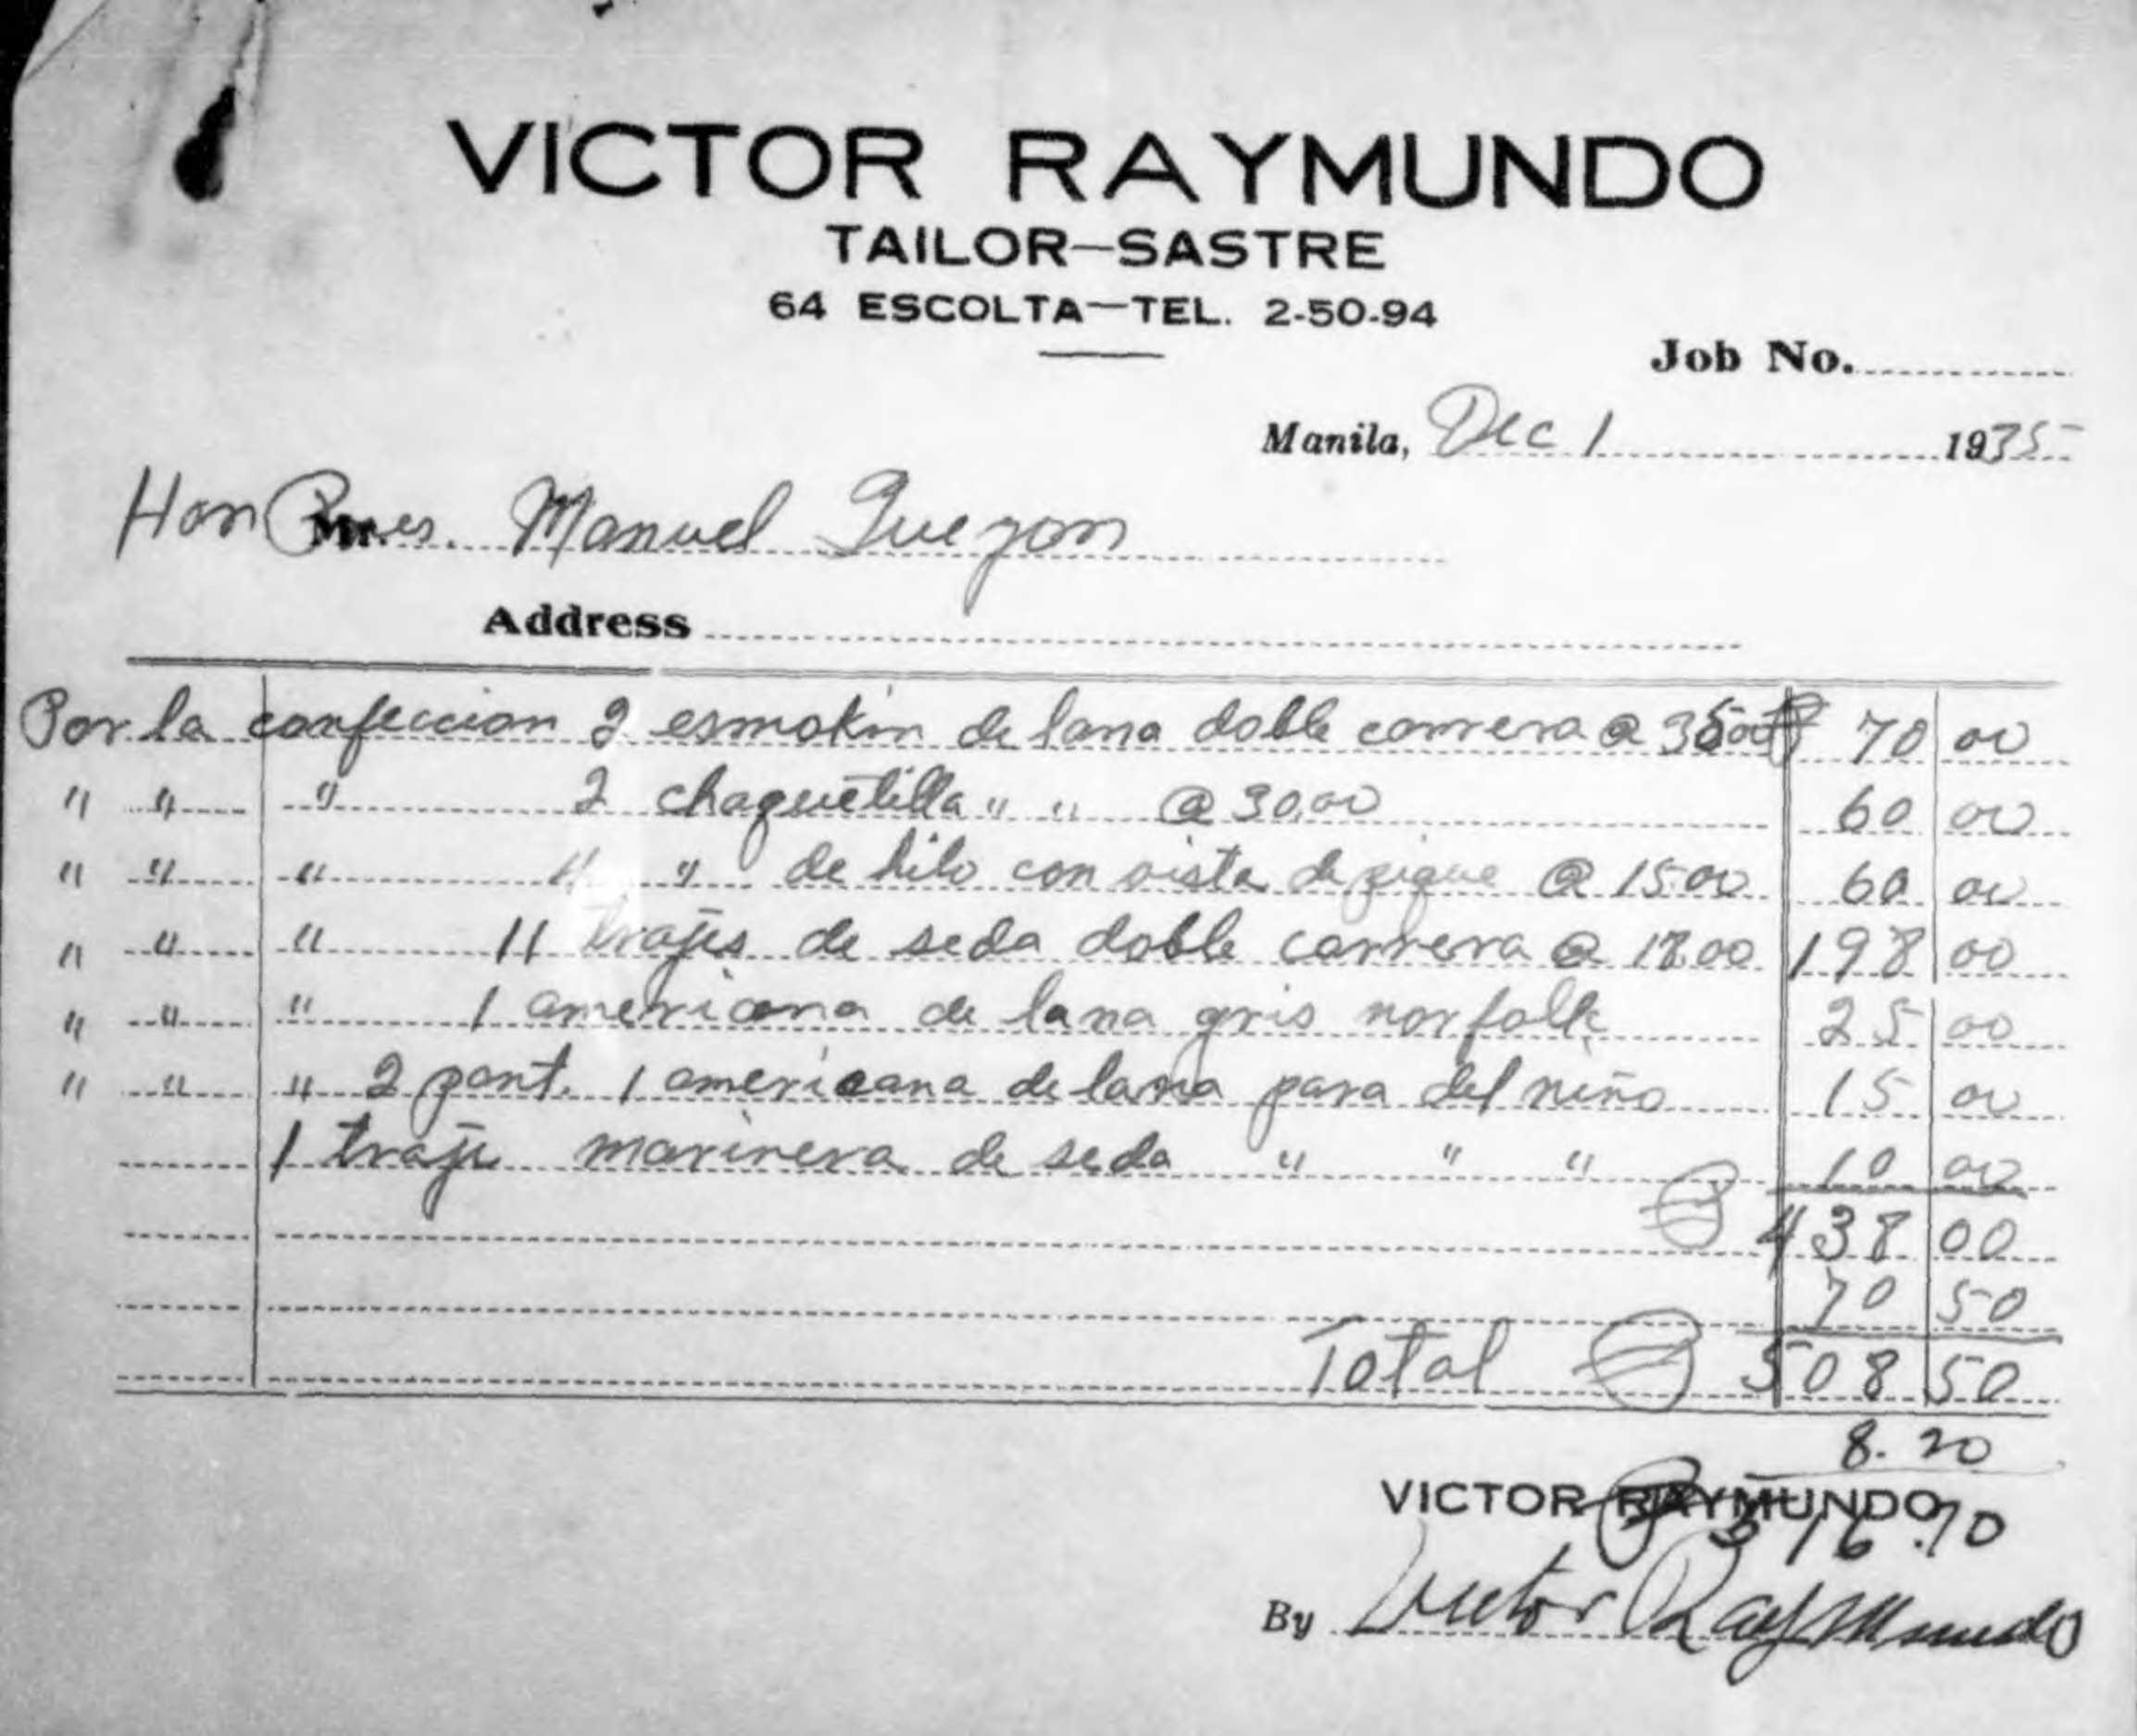 VICTOR RAYMUNDO
TAILOR—SASTRE
64 ESCOLTA—TEL. 2-50-94
Job No.
Manila, Dec 1 1935
Hon Pres. Manuel Quezon
Address
Por la confeccion 2 esmokin de lana doble carrera @ 35.00 ₱ 70 00
" " " 2 chaquetilla " " @ 30.00 60 00
" " " 4 " de hilo con vista de pique @ 15.00 60 00
" " " 11 trajes de seda doble carrera @ 18.00 198 00
" " " 1 americana de lana gris norfolk 25 00
" " " 2 pant. 1 americana de lana para del niño 15 00
1 traje marinera de seda " " " 10 00
₱ 438 00
70 50
Total ₱ 508 50
8.20
VICTOR RAYMUNDO
₱ 516.70
By Victor Raymundo